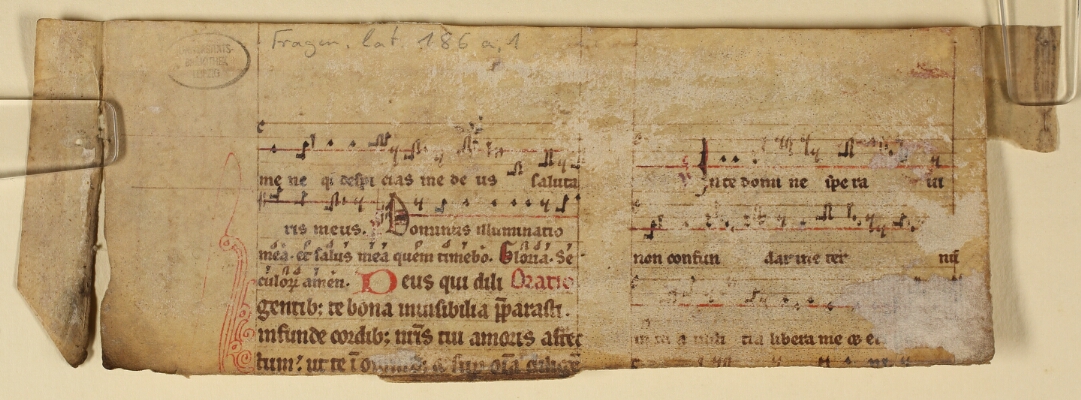 Fragm. lat. 186 a, 1
me ne qi despi cias me de us saluta
ris meus. Dominus illuminatio
mea. et salus mea quem timebo. Gloria. Se
culorum amen. Deus qui dili Oratio
gentib; te bona inuisibilia pparasti.
infunde cordib; nris tui amoris affec
tum. ut te i
In te domi ne spe ra ui
non confun dar in e ter nu
libera me